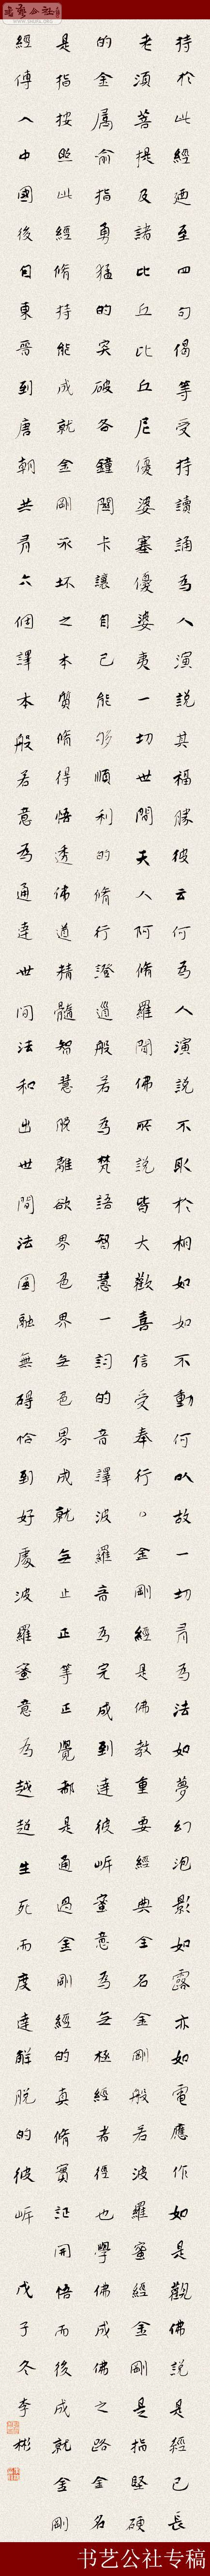 持於此經迺至四句偈等受持讀誦為人演說其福勝彼云何為人演說不取於相如如不動何以故一切有為法如夢幻泡影如露亦如電應作如是觀佛說是經已長
老須菩提及諸比丘比丘尼優婆塞優婆夷一切世間天人阿脩羅聞佛所說皆大歡喜信受奉行。金剛經是佛教重要經典全名金剛般若波羅蜜經金剛是指堅硬
的金屬喻指勇猛的突破各鐘關卡讓自己能夠順利的脩行證道般若為梵語智慧一詞的音譯波羅音為完成到達彼岸蜜意為无極經者徑也學佛成佛之路全名
是指按照此經脩持能成就金剛不坏之本質脩得悟透佛道精髓智慧脫離欲界色界无色界成就无上正等正覺都是通過金剛經的真脩實証開悟而後成就金剛
經傳入中國後自東晉到唐朝共有六個譯本般若意為通達世間法和出世間法圓融無碍恰到好處波羅蜜意為越超生死而度達解脫的彼岸 戊子冬李彬
书艺公社专稿